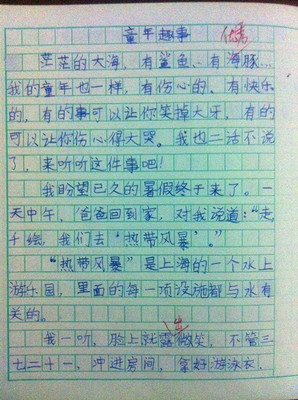 童年趣事
茫茫的大海，有鲨鱼、有海豚…
我的童年也一样，有伤心的、有快乐
的，有的事可以让你笑掉大牙，有的
可以让你伤心得大哭。我也二话不说
了，来听听这件事吧！
我盼望已久的暑假终于来了。一
天中午，爸爸回到家，对我说道：“走
我们去‘热带风暴’。”
“热带风暴”是上海的一个水上
游乐园，里面的每一项设施都与水有
关的。
我一听，脸上就露微笑，不管三
七二十一，冲进房间，拿好游泳衣，